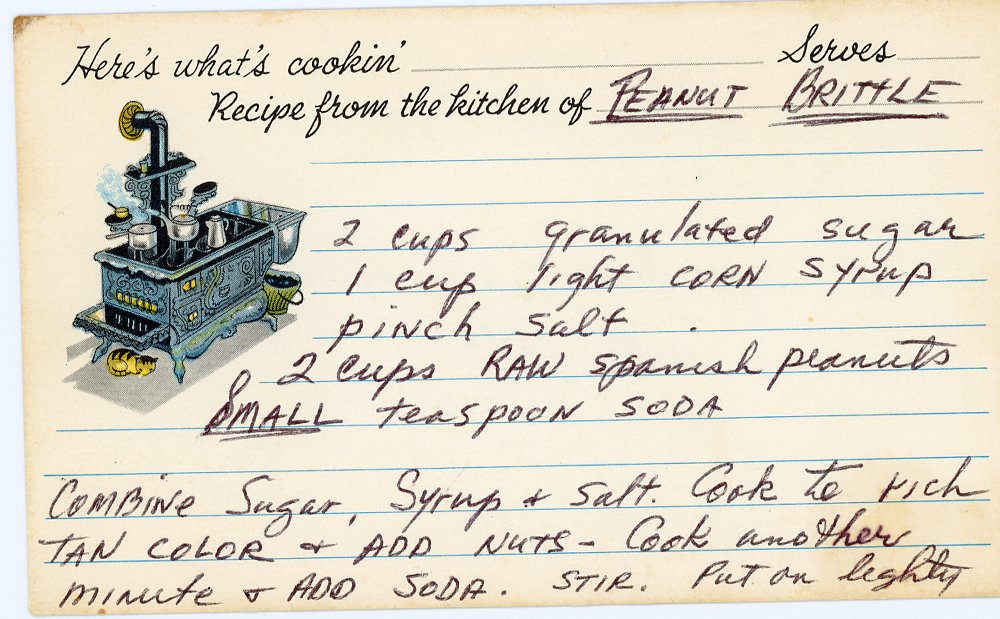 Here's what's cookin' Serves
Recipe from the kitchen of PEANUT BRITTLE
2 cups granulated sugar
1 cup light CORN Syrup
pinch salt.
2 cups RAW spanish peanuts
SMALL teaspoon SODA
COMBINE Sugar, Syrup + salt. Cook to rich
TAN COLOR + ADD NUTS - Cook another
minute + ADD SODA. STIR. Put on lighty